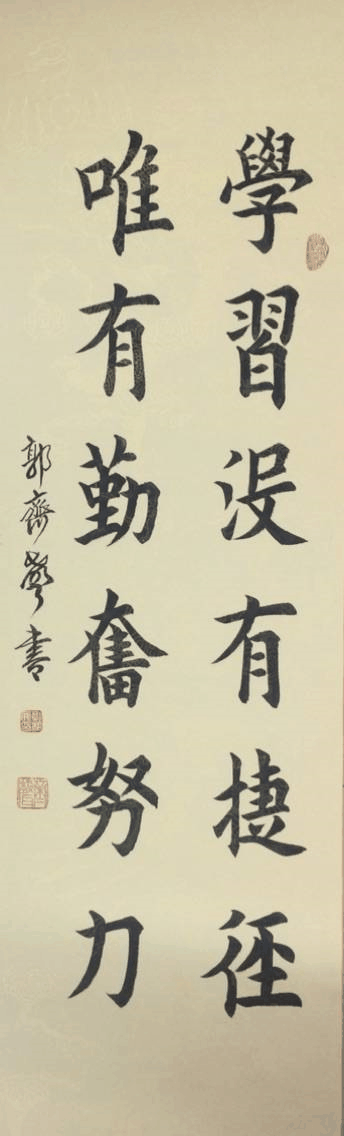 學習没有捷徑
唯有勤奮努力
郭齊聲書